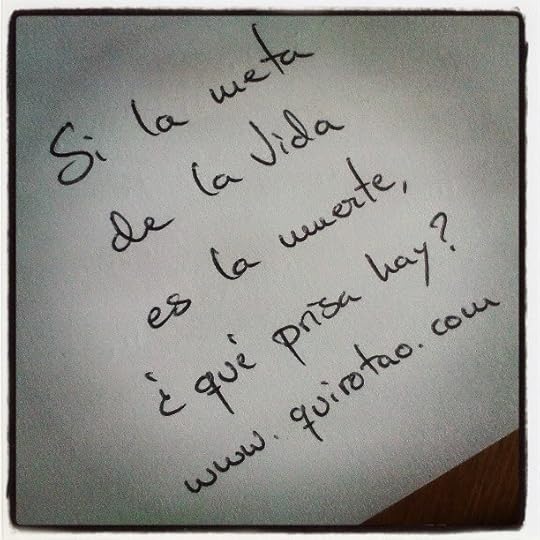 Si la meta
de la Vida
es la muerte,
¿qué prisa hay?
www.quirotao.com